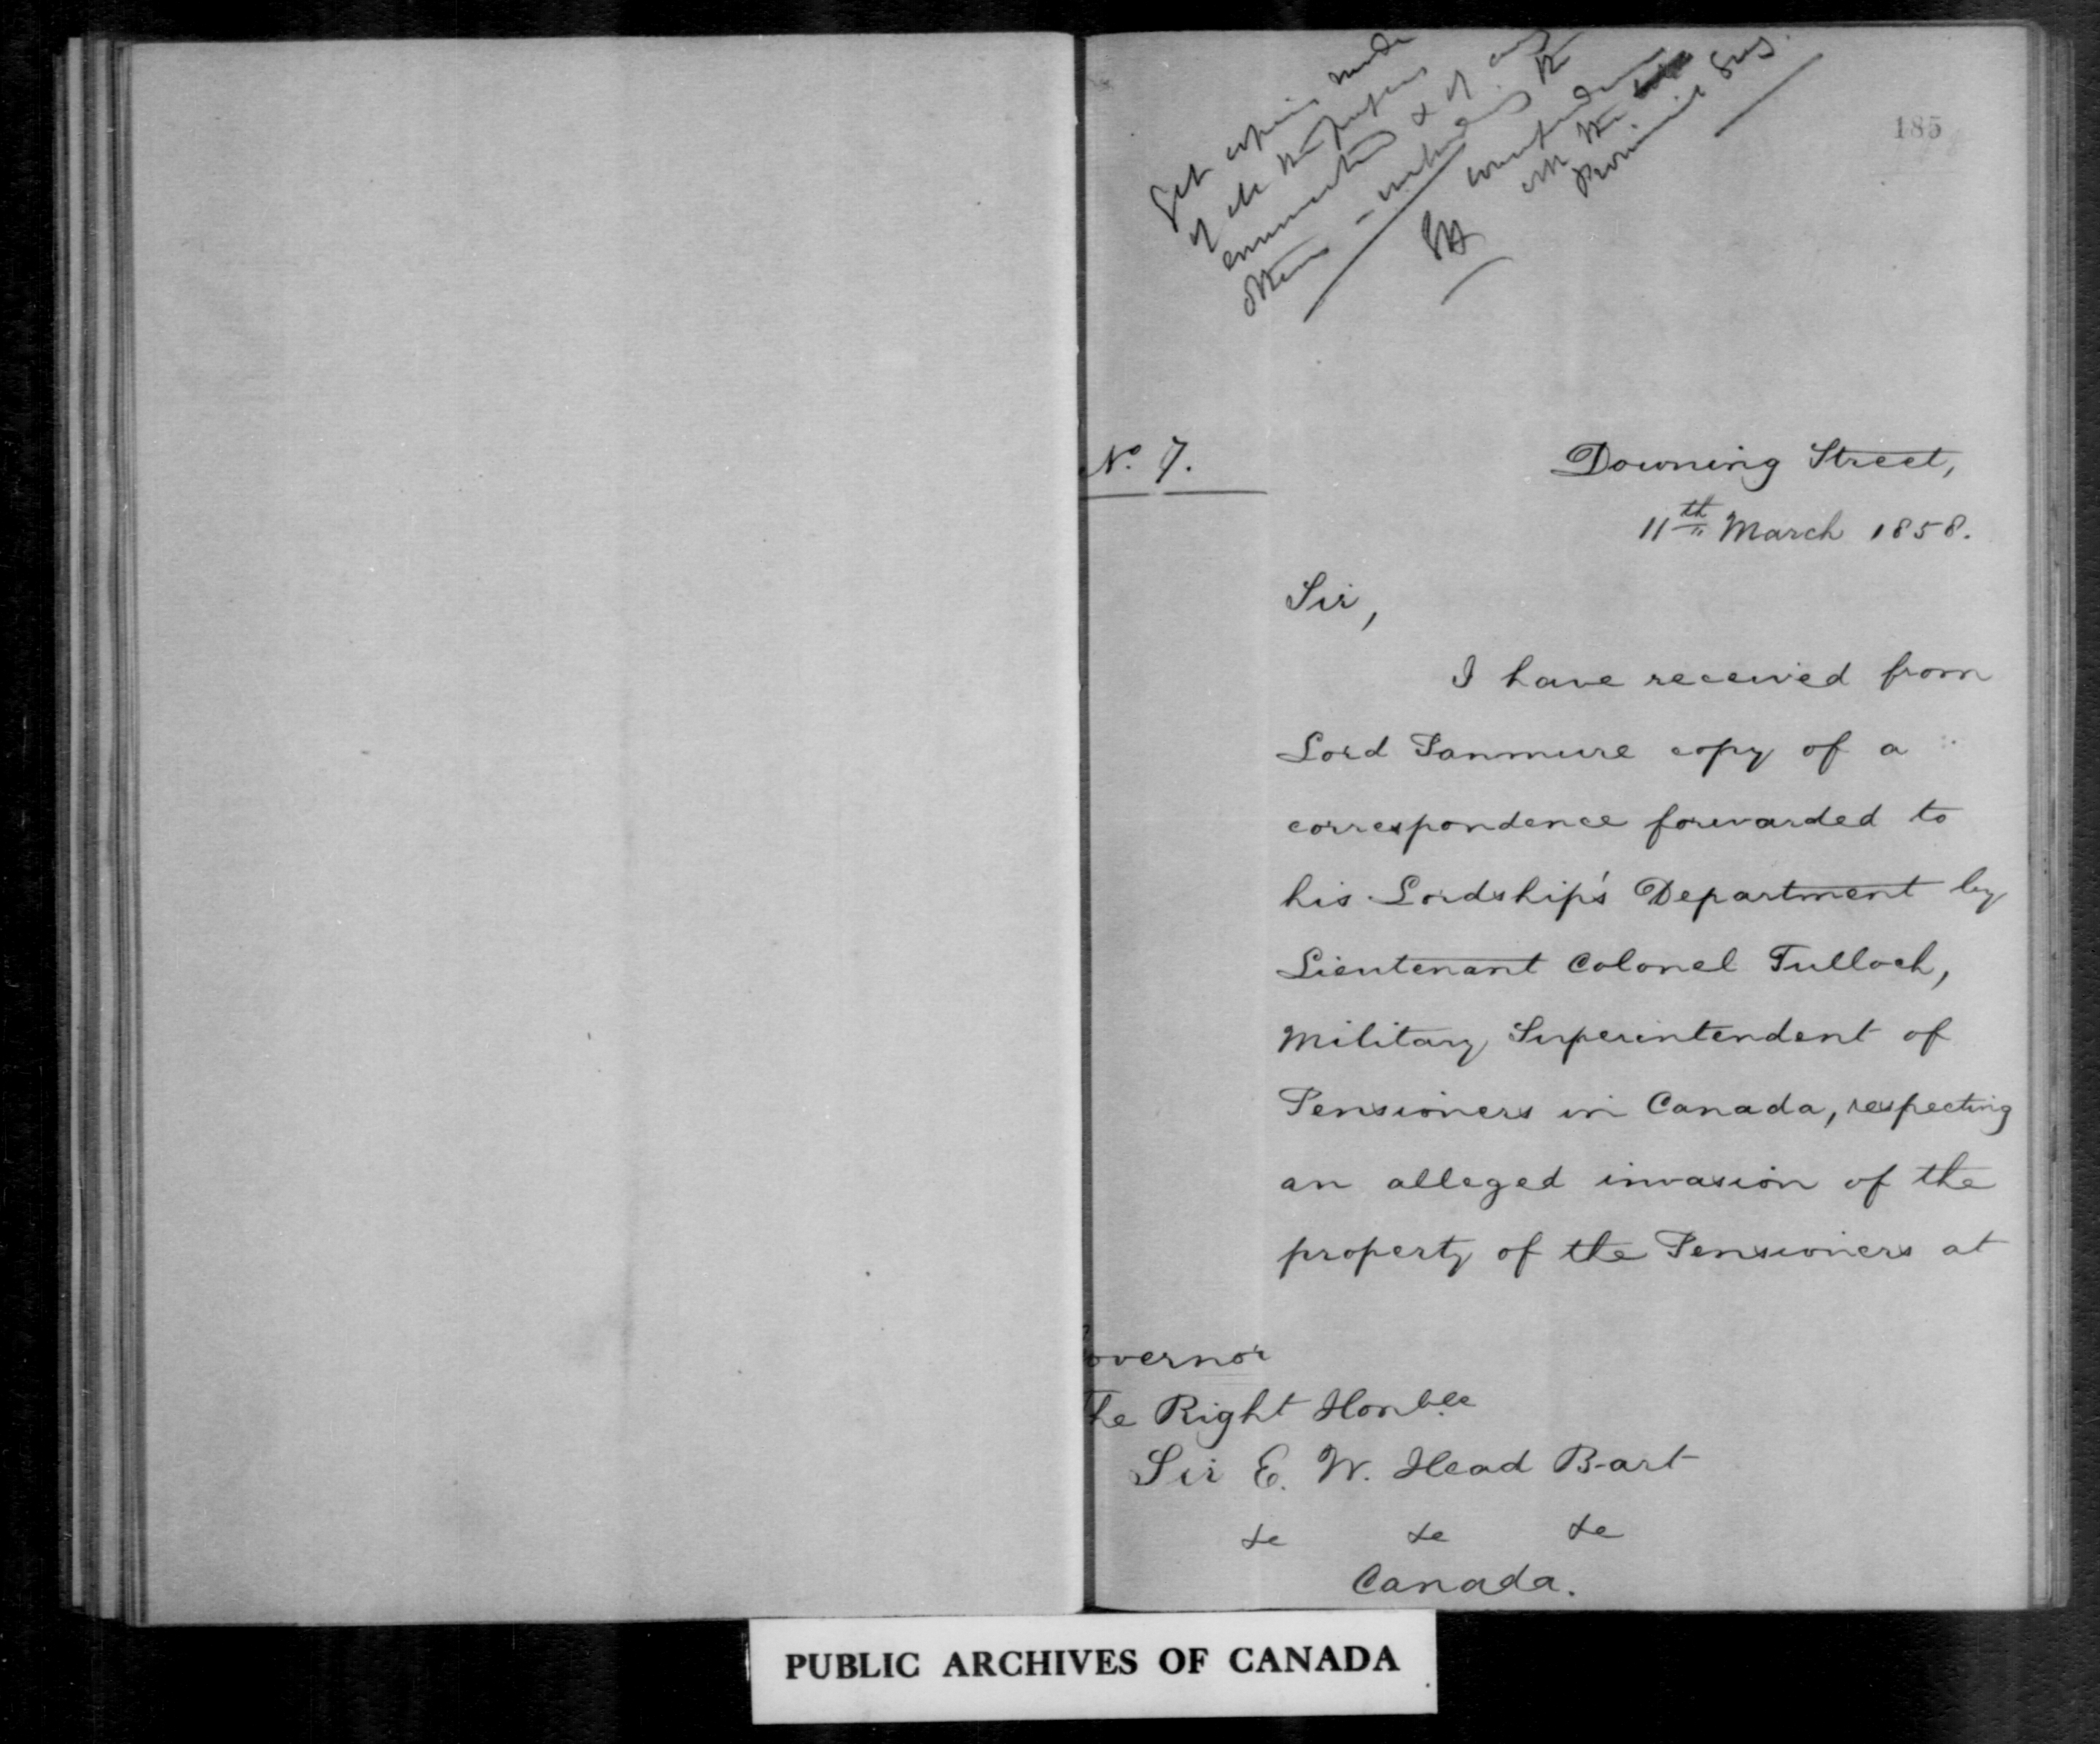 185
Get copies made
of all the papers
enumerated & of any
others
EH
on the
Provincial
No. 7.
Downing Street,
11th March 1858.
Sir,
I have received from
Lord Panmure copy of a
correspondence forwarded to
his Lordship's Department by
Lieutenant Colonel Tulloch,
Military Superintendent of
Pensioners in Canada, respecting
an alleged invasion of the
property of the Pensioners at
overnor
The Right Honble
Sir E. W. Head Bart
&c &c &c
Canada.
PUBLIC ARCHIVES OF CANADA